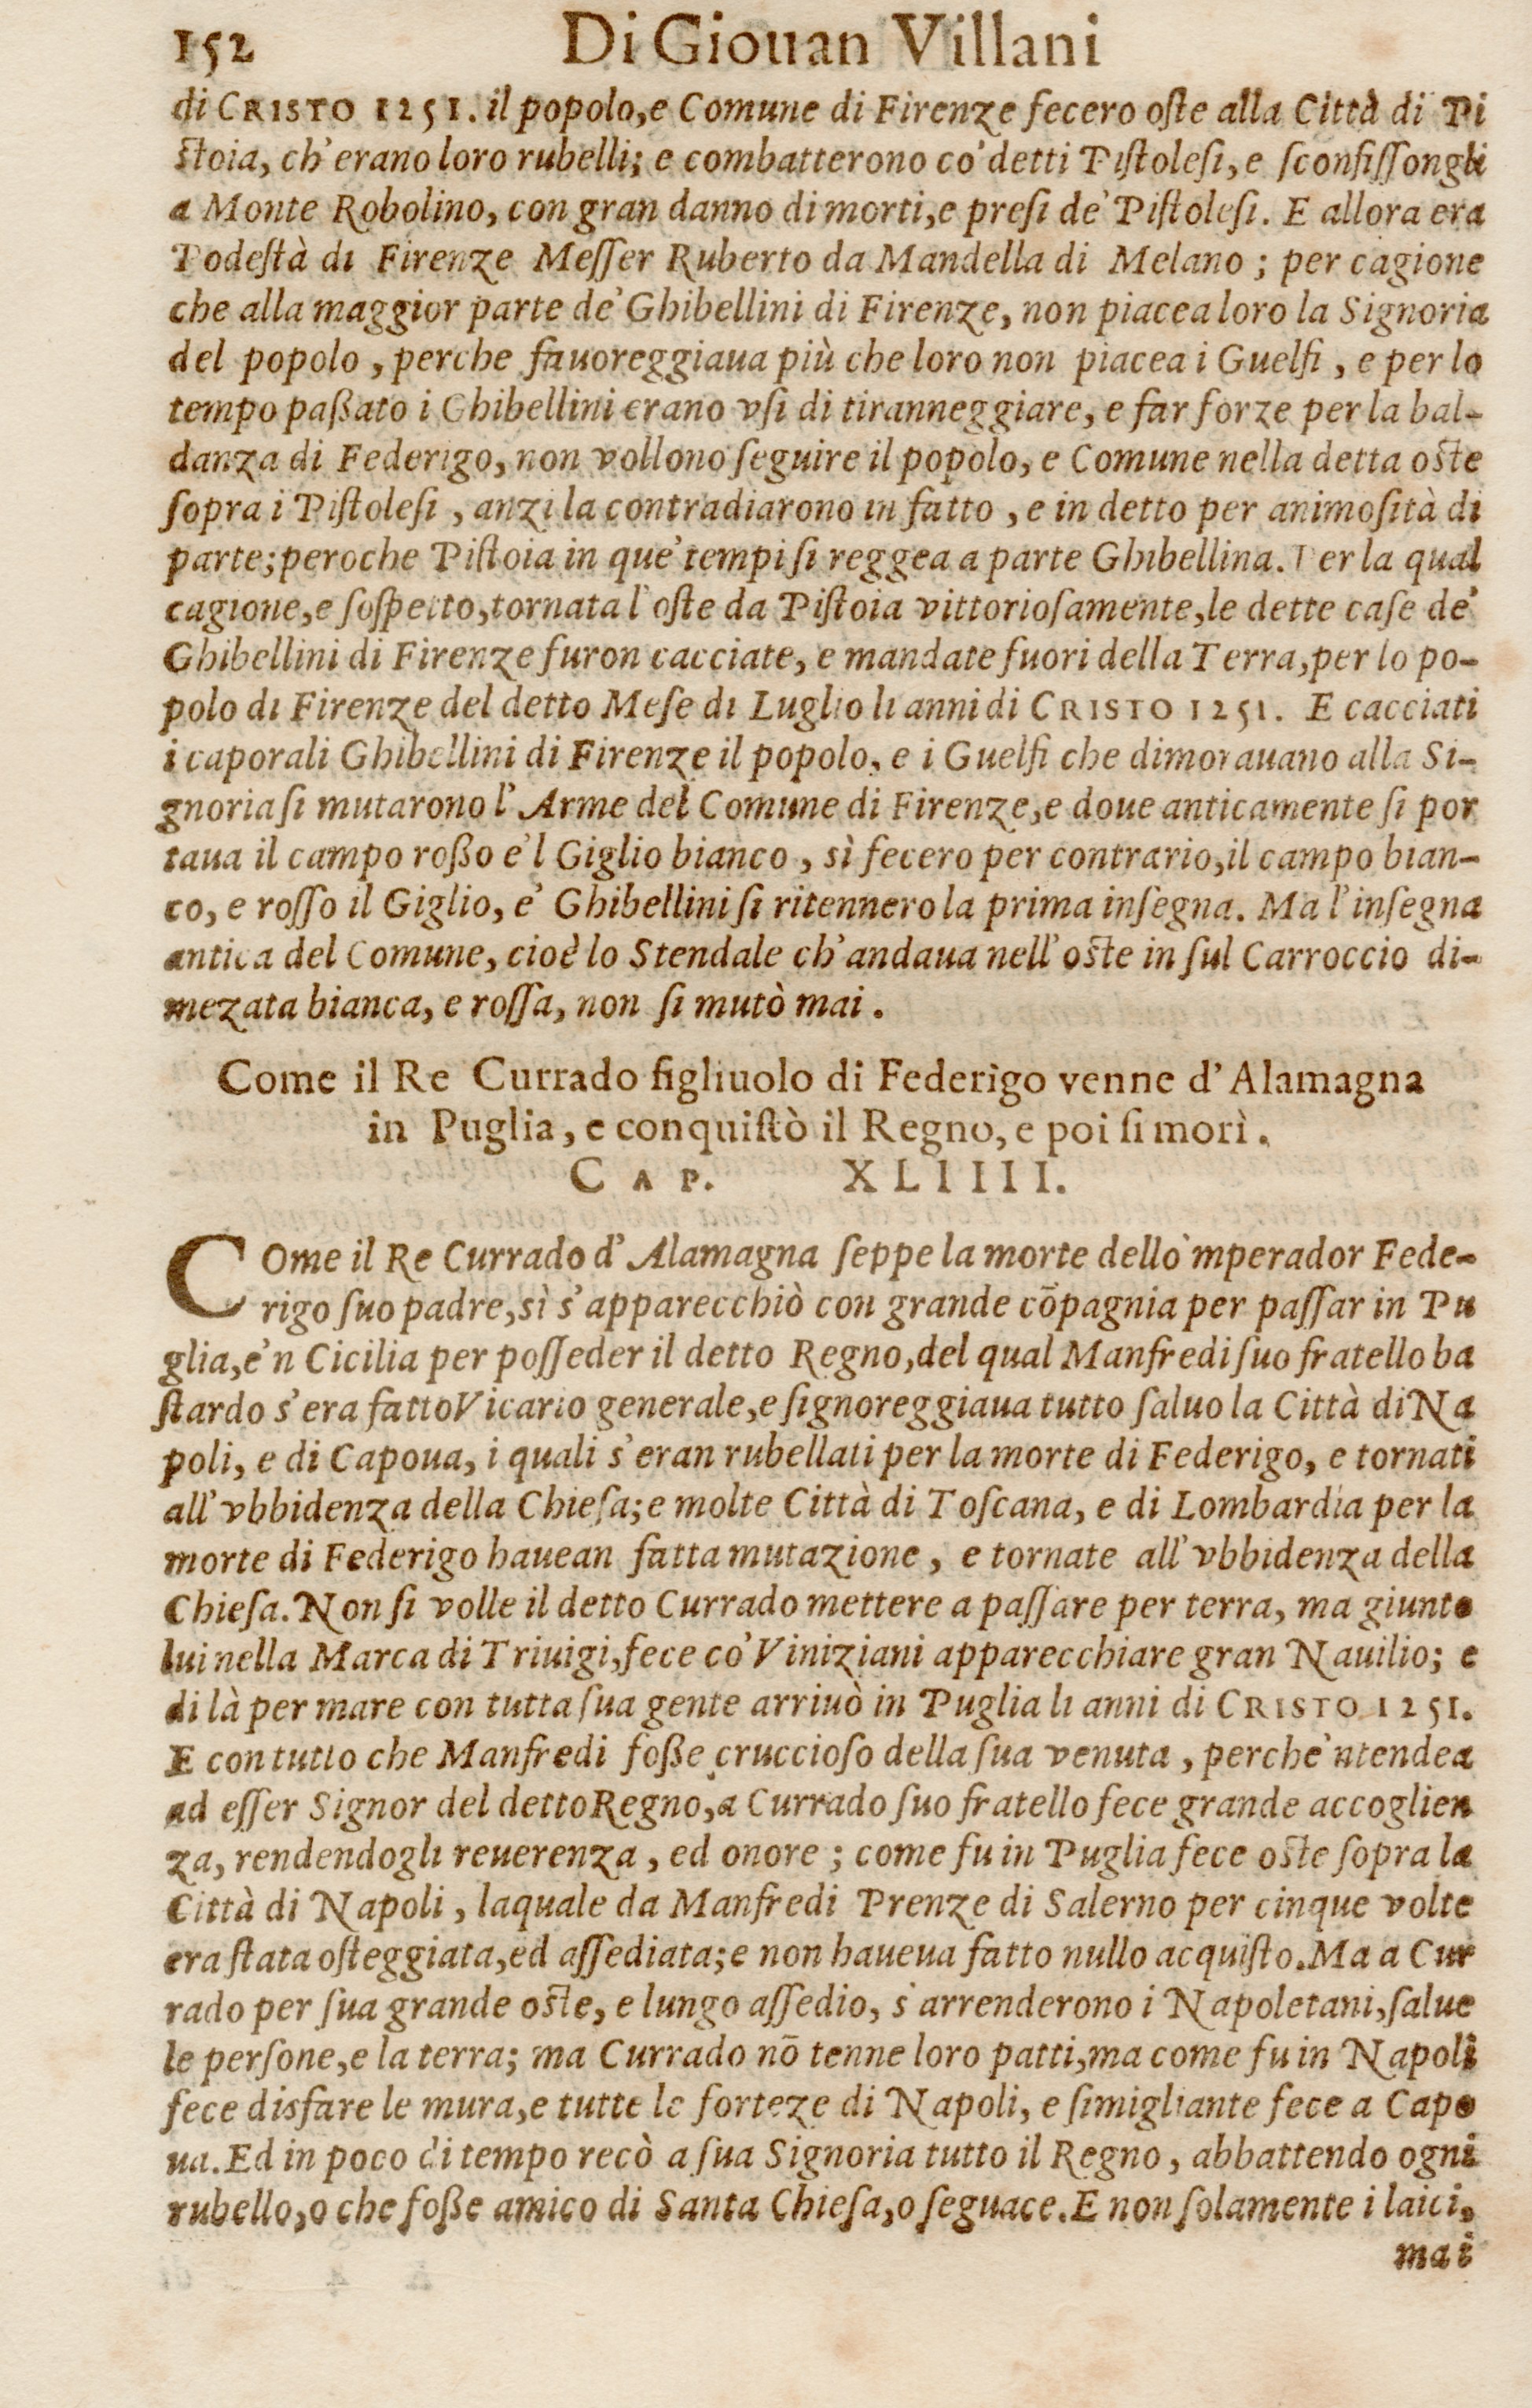 152 Di Giouan Villani
di CRISTO 1251. il popolo, e Comune di Firenze fecero oſte alla Città di Pi
ſtoia, ch'erano loro rubelli; e combatterono co' detti Piſtoleſi, e ſconfiſſongli
a Monte Robolino, con gran danno di morti, e preſi de' Piſtoleſi. E allora era
Podeſtà di Firenze Meſſer Ruberto da Mandella di Melano; per cagione
che alla maggior parte de' Ghibellini di Firenze, non piacea loro la Signoria
del popolo, perche fauoreggiaua più che loro non piacea i Guelfi, e per lo
tempo paßato i Ghibellini erano vſi di tiranneggiare, e far forze per la bal-
danza di Federigo, non vollono ſeguire il popolo, e Comune nella detta oſte
ſopra i Piſtoleſi, anzi la contradiarono in fatto, e in detto per animoſità di
parte; peroche Piſtoia in que' tempi ſi reggea a parte Ghibellina. Per la qual
cagione, e ſoſpetto, tornata l'oſte da Piſtoia vittorioſamente, le dette caſe de'
Ghibellini di Firenze furon cacciate, e mandate fuori della Terra, per lo po-
polo di Firenze del detto Meſe di Luglio li anni di CRISTO 1251. E cacciati
i caporali Ghibellini di Firenze il popolo, e i Guelfi che dimorauano alla Si-
gnoria ſi mutarono l'Arme del Comune di Firenze, e doue anticamente ſi por
taua il campo roßo e'l Giglio bianco, sì fecero per contrario, il campo bian-
co, e roſſo il Giglio, e' Ghibellini ſi ritennero la prima inſegna. Ma l'inſegna
antica del Comune, cioè lo Stendale ch'andaua nell'oſte in ſul Carroccio di-
mezata bianca, e roſſa, non ſi mutò mai.
Come il Re Currado figliuolo di Federigo venne d'Alamagna
in Puglia, e conquiſtò il Regno, e poi ſi morì.
CAP. XLIIII.
COme il Re Currado d'Alamagna ſeppe la morte dello'mperador Fede-
rigo ſuo padre, sì s'apparecchiò con grande cōpagnia per paſſar in Pu
glia, e'n Cicilia per poſſeder il detto Regno, del qual Manfredi ſuo fratello ba
ſtardo s'era fatto Vicario generale, e ſignoreggiaua tutto ſaluo la Città di Na
poli, e di Capoua, i quali s'eran rubellati per la morte di Federigo, e tornati
all'vbbidenza della Chieſa; e molte Città di Toſcana, e di Lombardia per la
morte di Federigo hauean fatta mutazione, e tornate all'vbbidenza della
Chieſa. Non ſi volle il detto Currado mettere a paſſare per terra, ma giunto
lui nella Marca di Triuigi, fece co' Viniziani apparecchiare gran Nauilio; e
di là per mare con tutta ſua gente arriuò in Puglia li anni di CRISTO 1251.
E con tutto che Manfredi foße cruccioſo della ſua venuta, perche'ntendea
ad eſſer Signor del detto Regno, a Currado ſuo fratello fece grande accoglien
za, rendendogli reuerenza, ed onore; come fu in Puglia fece oſte ſopra la
Città di Napoli, laquale da Manfredi Prenze di Salerno per cinque volte
era ſtata oſteggiata, ed aſſediata; e non haueua fatto nullo acquiſto. Ma a Cur
rado per ſua grande oſte, e lungo aſſedio, s'arrenderono i Napoletani, ſalue
le perſone, e la terra; ma Currado nō tenne loro patti, ma come fu in Napoli
fece disfare le mura, e tutte le forteze di Napoli, e ſimigliante fece a Capo
ua. Ed in poco di tempo recò a ſua Signoria tutto il Regno, abbattendo ogni
rubello, o che foße amico di Santa Chieſa, o ſeguace. E non ſolamente i laici,
mai